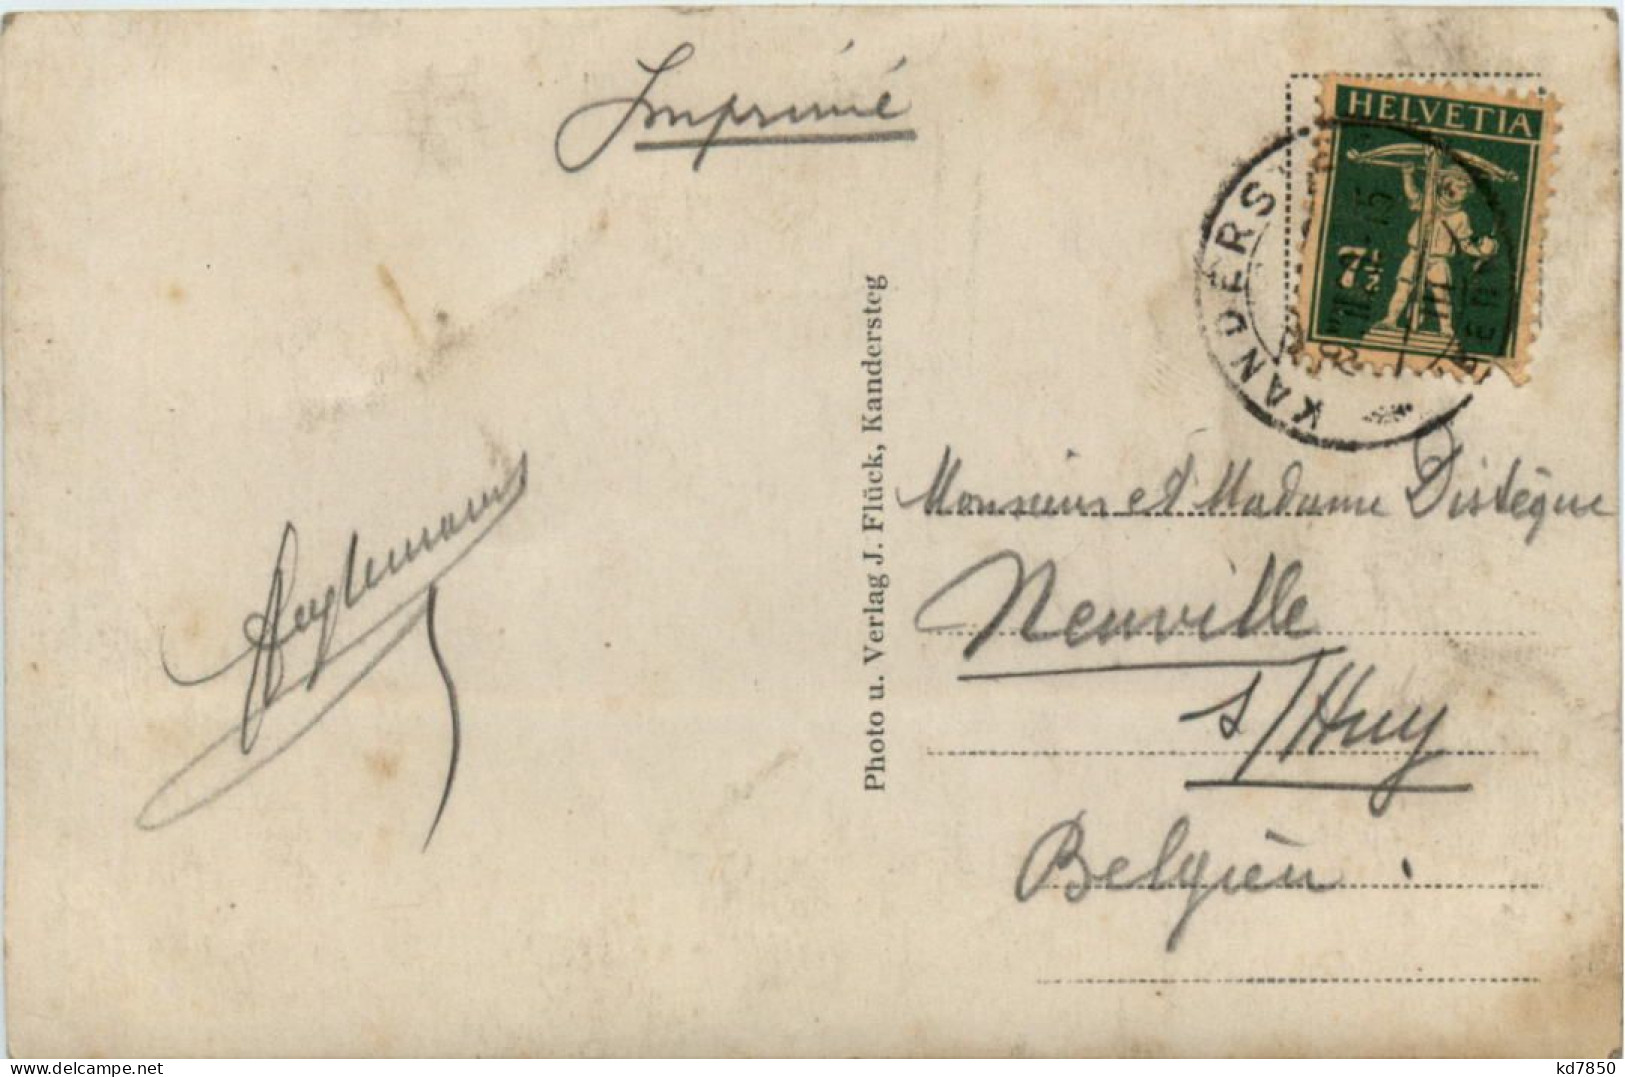 Imprimé
HELVETIA
7½
KANDERSTEG
Photo u. Verlag J. Flück, Kandersteg
Monsieur et Madame Distèque
Neuville
s/Huy
Belgien.
delcampe.net
kd7850